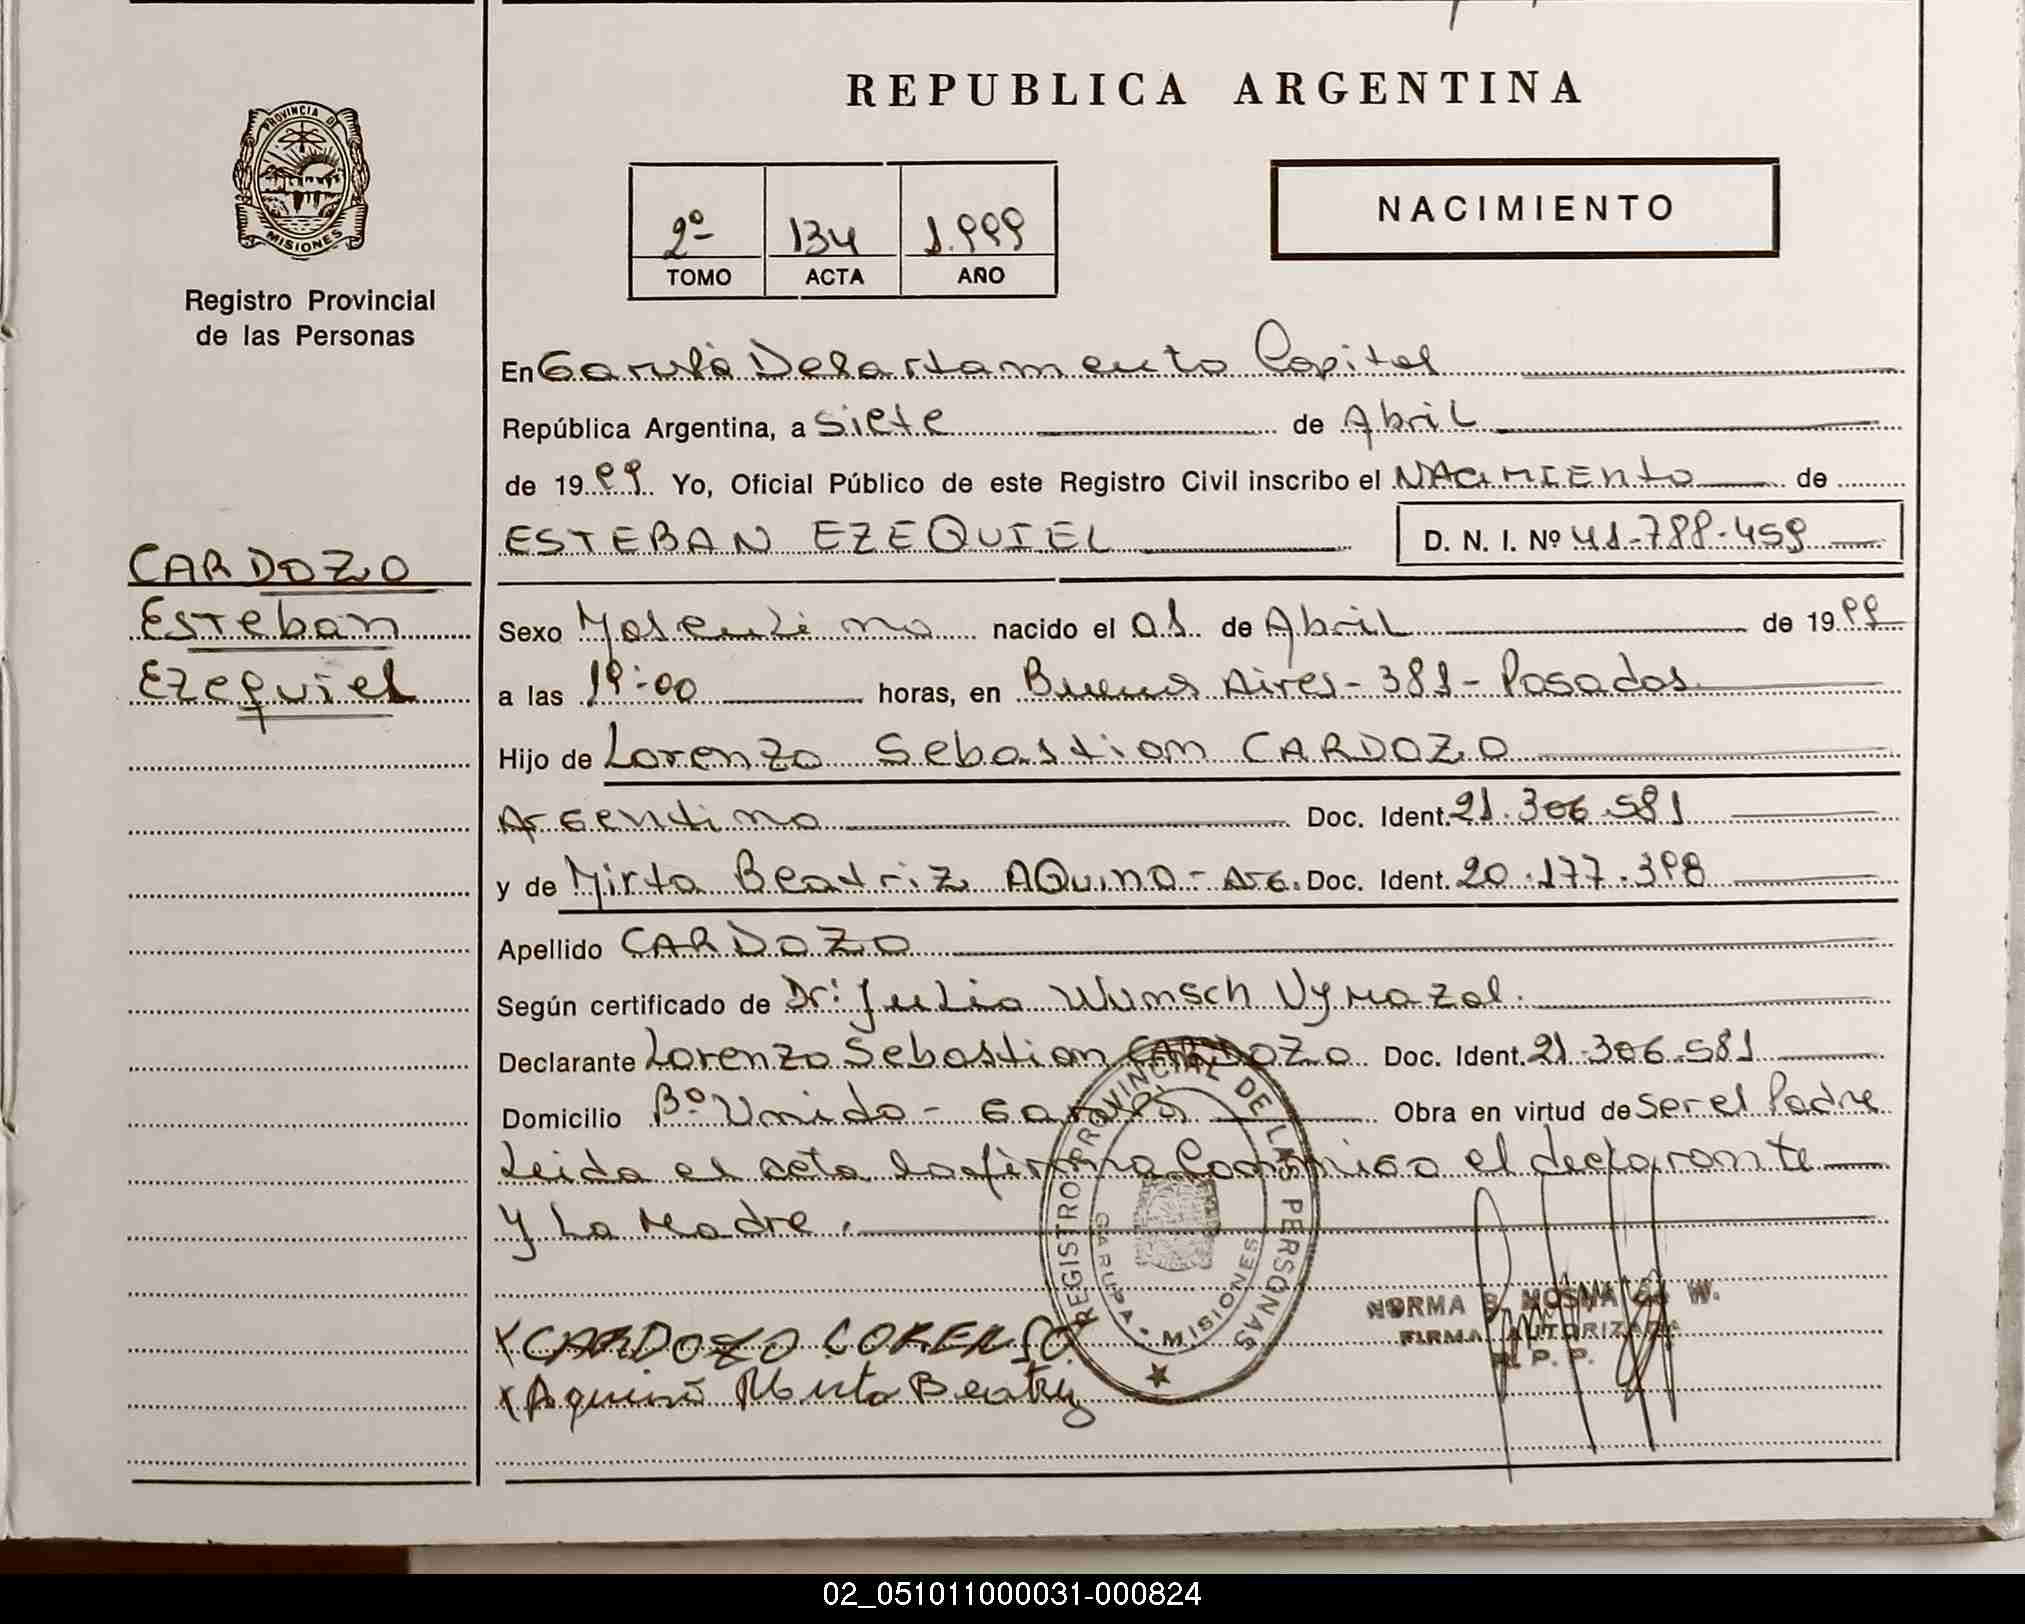 REPUBLICA ARGENTINA
PROVINCIA DE
MISIONES
Registro Provincial
de las Personas
2º 134 1.999
TOMO ACTA AÑO
NACIMIENTO
En Garupá Departamento Capital
República Argentina, a Siete de Abril
de 1999 Yo, Oficial Público de este Registro Civil inscribo el NACIMIENTO de
ESTEBAN EZEQUIEL D. N. I. Nº 41-788-459
CARDOZO
Esteban
Ezequiel
Sexo Masculino nacido el 01 de Abril de 1999
a las 19:00 horas, en Buenos Aires-381-Posadas
Hijo de Lorenzo Sebastian CARDOZO
Argentino Doc. Ident. 21.306.581
y de Mirta Beatriz AQuino - Arg. Doc. Ident. 20.177.398
Apellido CARDOZO
Según certificado de Dr: Julio Wunsch
Declarante Lorenzo Sebastian CARDOZO Doc. Ident. 21.306.581
Domicilio Bº Unido - Garupá Obra en virtud de Ser el Padre
Leida el acta la firma Conmigo el declarante
y La Madre.
REGISTRO PROVINCIAL DE LAS PERSONAS
GARUPA • MISIONES
X CARDOZO LORENSO
X Aquino Mirta Beatriz
NORMA W.
FIRMA AUTORIZADA
R. P. P.
02_051011000031-000824